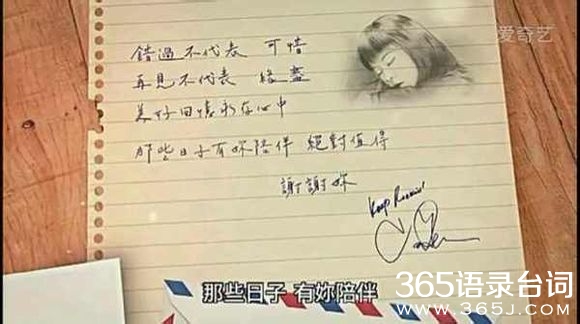 爱奇艺
錯過不代表 可惜
再見不代表 緣盡
美好回憶永在心中
那些日子有妳陪伴 絕對值得
謝謝妳
Keep Runnin'
那些日子 有妳陪伴
365语录台词
WWW.365J.COM